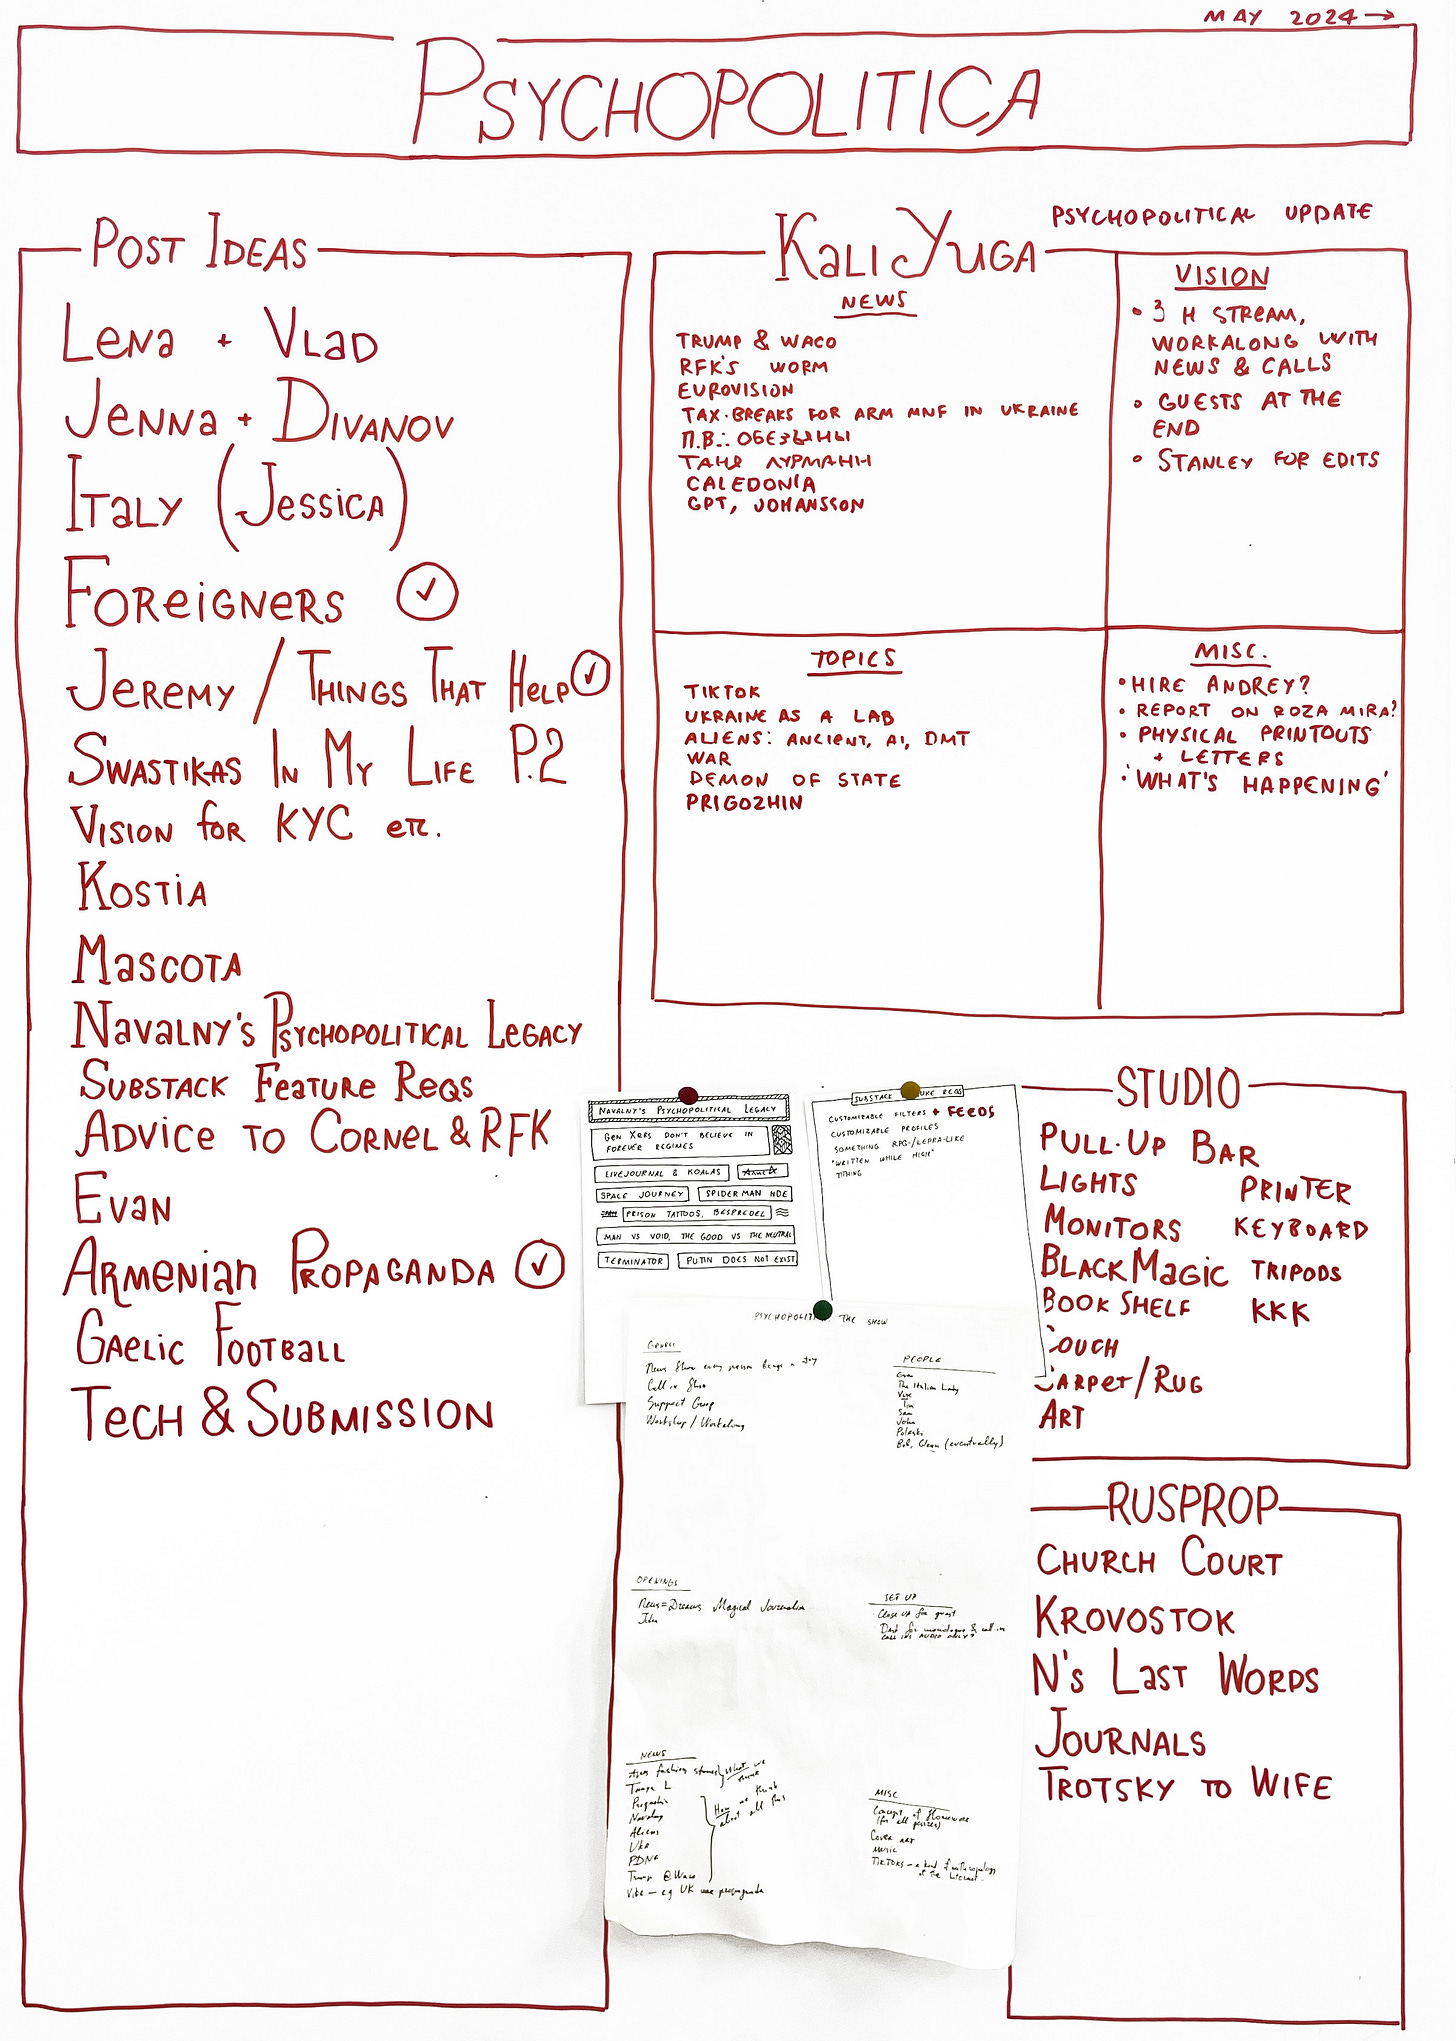 MAY 2024→
PSYCHOPOLITICA
POST IDEAS
LENA + VLAD
JENNA + DIVANOV
ITALY (JESSICA)
FOREIGNERS ✓
JEREMY / THINGS THAT HELP ✓
SWASTIKAS IN MY LIFE P.2
VISION FOR KYC ETC.
KOSTIA
MASCOTA
NAVALNY'S PSYCHOPOLITICAL LEGACY
SUBSTACK FEATURE REQS
ADVICE TO CORNEL & RFK
EVAN
ARMENIAN PROPAGANDA ✓
GAELIC FOOTBALL
TECH & SUBMISSION
KALI YUGA
PSYCHOPOLITICAL UPDATE
NEWS
TRUMP & WACO
RFK'S WORM
EUROVISION
TAX-BREAKS FOR ARM MNF IN UKRAINE
П.В.: ОБЕЗЬЯНЫ
ТАНЯ ЛУРМАНН
CALEDONIA
GPT, JOHANSSON
VISION
• 3 H STREAM,
WORKALONG WITH
NEWS & CALLS
• GUESTS AT THE
END
• STANLEY FOR EDITS
TOPICS
TIKTOK
UKRAINE AS A LAB
ALIENS: ANCIENT, AI, DMT
WAR
DEMON OF STATE
PRIGOZHIN
MISC.
• HIRE ANDREY?
• REPORT ON ROZA MIRA?
• PHYSICAL PRINTOUTS
+ LETTERS
• 'WHAT'S HAPPENING'
NAVALNY'S PSYCHOPOLITICAL LEGACY
GEN XERS DON'T BELIEVE IN
FOREVER REGIMES
LIVEJOURNAL & KOALAS
SPACE JOURNEY
SPIDERMAN NDE
PRISON TATTOOS, BESPREDEL
MAN VS VOID, THE GOOD VS THE NEUTRAL
TERMINATOR
PUTIN DOES NOT EXIST
SUBSTACK REQS
CUSTOMIZABLE FILTERS + FEEDS
CUSTOMIZABLE PROFILES
SOMETHING RPG-/LEPRA-LIKE
"WRITTEN WHILE HIGH"
TITHING
PSYCHOPOLITICA THE SHOW
News Show every person brings a
Call in Show
Support Group
Workshop / Workalong
PEOPLE
Evan
The Italian Lady
Tim
Sam
John
Bob, Glenn (eventually)
OPENINGS
News = Dreams Magical Journalism
John
SET UP
Close up for guest
Desk for monologue & call-in
CALL INS AUDIO ONLY?
NEWS
Tanya L
Prigozhin
Navalny
Aliens
Ukr
Trump @ Waco
Vibe – eg UK war propaganda
What we think
How we think
about all this
MISC
Concept of
(for all pieces)
Cover art
MUSIC
TIKTOKS – a kind of anthropology
of the Internet.
STUDIO
PULL-UP BAR
LIGHTS PRINTER
MONITORS KEYBOARD
BLACKMAGIC TRIPODS
BOOKSHELF KKK
COUCH
CARPET/RUG
ART
RUSPROP
CHURCH COURT
KROVOSTOK
N'S LAST WORDS
JOURNALS
TROTSKY TO WIFE